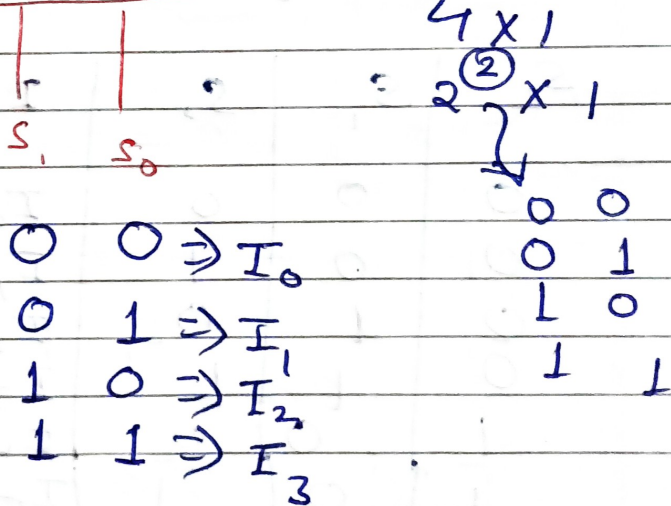 4 x 1
2^② x 1
S₁ S₀
0 0 ⇒ I₀
0 1 ⇒ I₁
1 0 ⇒ I₂
1 1 ⇒ I₃
0 0
0 1
1 0
1 1